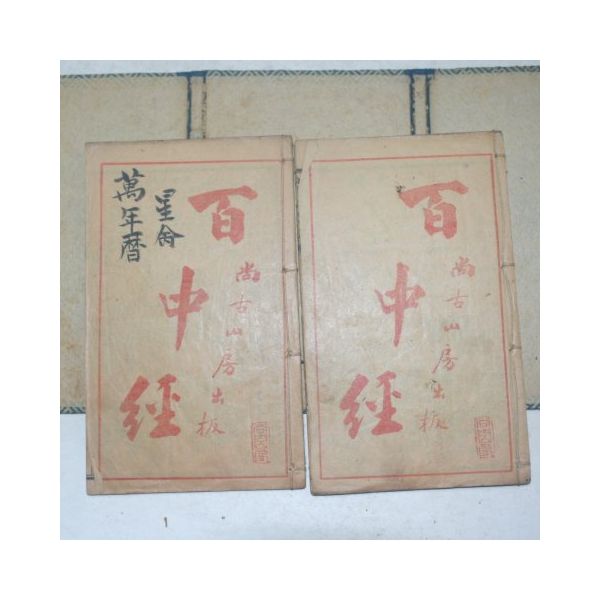 萬年曆
星命
百中經
尚古山房出板
百中經
尚古山房出板